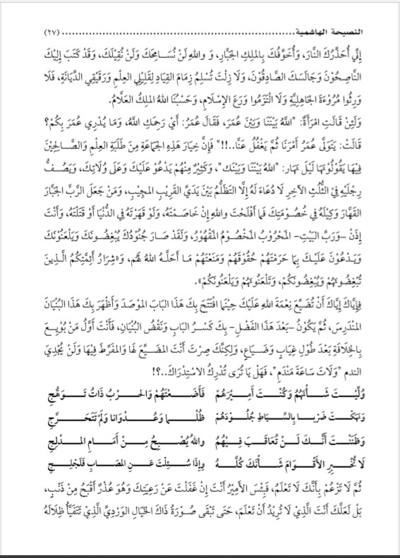 النصيحة الهاشمية ........................................ (٢٧)
إِنِّي أُحَذِّرُكَ النَّارَ، وَأُخَوِّفُكَ بِالمَلِكِ الجَبَّارِ، وَ واللهِ لَنْ نُسَامِحَكَ وَلَنْ نُقِيلَكَ، وَقَدْ كَتَبَ إِلَيْكَ
النَّاصِحُونَ وَجَالَسَكَ الصَّادِقُونَ، وَلَا زِلْتَ تُسْلِمُ زِمَامَ القِيَادِ لِقَلِيلِي العِلْمِ وَرَقِيقِي الدِّيَانَةِ، فَلَا
وَرِثُوا مُرُوءَةَ الجَاهِلِيَّةِ وَلَا الْتَزَمُوا وَرَعَ الإِسْلَامِ، وَحَسْبُنَا اللهُ المَلِكُ العَلَّامُ.
وَلَئِنْ قَالَتِ امْرَأَةٌ: "اللهُ بَيْنَنَا وَبَيْنَ عُمَرَ، فَقَالَ عُمَرُ: أَيْ رَحِمَكِ اللهُ، وَمَا يُدْرِي عُمَرَ بِكُمْ؟
قَالَتْ: يَتَوَلَّى عُمَرُ أَمْرَنَا ثُمَّ يَغْفُلُ عَنَّا..!!" فَإِنَّ خِيَارَ هَذِهِ الجَمَاعَةِ مِنْ طَلَبَةِ العِلْمِ وَالصَّالِحِينَ
فِيهَا يَقُولُونَهَا لَيْلَ نَهَارَ: "اللهُ بَيْنَنَا وَبَيْنَكَ"، وَكَثِيرٌ مِنْهُمْ يَدْعُو عَلَيْكَ وَعَلَى وُلَاتِكَ، وَيَصُفُّ
رِجْلَيْهِ فِي الثُّلُثِ الآخِرِ لَا دُعَاءَ لَهُ إِلَّا التَّظَلُّمُ بَيْنَ يَدَيِ القَرِيبِ المُجِيبِ، وَمَنْ جَعَلَ الرَّبَّ الجَبَّارَ
القَهَّارَ وَكِيلَهُ فِي خُصُومَتِكَ فَمَا أَفْلَحْتَ واللهِ إِنْ خَاصَمْتَهُ، وَلَوْ قَهَرْتَهُ فِي الدُّنْيَا أَوْ قَتَلْتَهُ، وَأَنْتَ
إِذَنْ -وَرَبِّ البَيْتِ- المَحْرُوبُ المَخْصُومُ المَقْهُورُ، وَلَقَدْ صَارَ جُنُودُكَ يُبْغِضُونَكَ وَيَلْعَنُونَكَ
وَيَدْعُونَ عَلَيْكَ بِمَا حَرَمْتَهُمْ حُقُوقَهُمْ وَمَنَعْتَهُمْ مَا أَحَلَّهُ اللهُ لَهُمْ، و«شِرَارُ أَئِمَّتِكُمُ الَّذِينَ
تُبْغِضُونَهُمْ وَيُبْغِضُونَكُمْ، وَتَلْعَنُونَهُمْ وَيَلْعَنُونَكُمْ».
فَإِيَّاكَ إِيَّاكَ أَنْ تُضَيِّعَ نِعْمَةَ اللهِ عَلَيْكَ حِينَمَا افْتَتَحَ بِكَ هَذَا البَابَ المُوصَدَ وَأَظْهَرَ بِكَ هَذَا البُنْيَانَ
المُنْدَرِسَ، ثُمَّ يَكُونُ -بَعْدَ هَذَا الفَضْلِ- بِكَ كَسْرُ البَابِ وَنَقْضُ البُنْيَانِ، فَأَنْتَ أَوَّلُ مَنْ بُويِعَ
بِالخِلَافَةِ بَعْدَ طُولِ غِيَابٍ وَضَيَاعٍ، وَلَكِنَّكَ صِرْتَ أَنْتَ المُضَيِّعَ لَهَا وَالمُفَرِّطَ فِيهَا وَلَنْ يُجْدِيَ
الندم "وَلَاتَ سَاعَةَ مَنْدَمٍ"، فَهَلْ يَا تُرَى تُدْرِكُ الاسْتِدْرَاكَ..؟!
وُلِّيتَ شَأْنَهُمُ وَكُنْتَ أَمِيرَهُمْ فَأَضَعْتَهُمْ وَالحَرْبُ ذَاتُ تَوَهُّجِ
وَنَهَكْتَ ضَرْبًا بِالسِّيَاطِ جُلُودَهُمْ ظُلْمًا وَعُدْوَانًا وَلَمْ تَتَحَرَّجِ
وَظَنَنْتَ أَنَّكَ لَنْ تُعَاقَبَ فِيهُمُ واللهُ يُصْبِحُ مِنْ أَمَامِ المُدْلِجِ
لَا تُخْبِرِ الأَقْوَامَ شَأْنَكَ كُلَّهُ وَإِذَا سُئِلْتَ عَنِ المُصَابِ فَلَجْلِجِ
ثُمَّ لَا تَزْعُمْ بِأَنَّكَ لَا تَعْلَمُ، فَبِئْسَ الأَمِيرُ أَنْتَ إِنْ غَفَلْتَ عَنْ رَعِيَّتِكَ وَهُوَ عُذْرٌ أَقْبَحُ مِنْ ذَنْبٍ،
بَلْ لَعَلَّكَ أَنْتَ الَّذِي لَا تُرِيدُ أَنْ تَعْلَمَ، حَتَّى تَبْقَى صُورَةُ ذَاكَ الخَيَالِ الوَرْدِيِّ الَّذِي تَتَفَيَّأُ ظِلَالَهُ